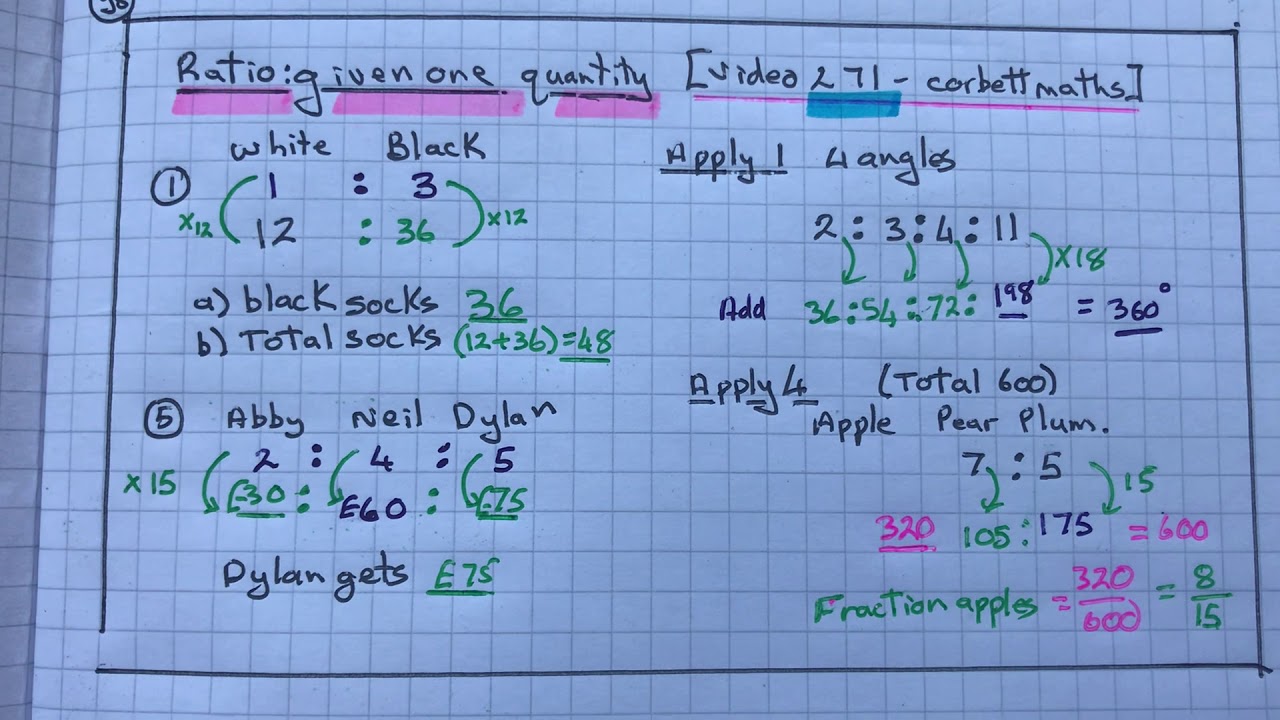 Ratio: given one quantity [Video 271 - corbettmaths]
White Black
① 1 : 3
x12 12 : 36 x12
a) black socks 36
b) Total socks (12+36)=48
⑤ Abby Neil Dylan
2 : 4 : 5
x15 £30 : £60 : £75
Dylan gets £75
Apply 1 4 angles
2 : 3 : 4 : 11
x18
Add 36:54:72:198 = 360°
Apply 4 (Total 600)
Apple Pear Plum.
7 : 5
15
320 105:175 = 600
Fraction apples = 320/600 = 8/15